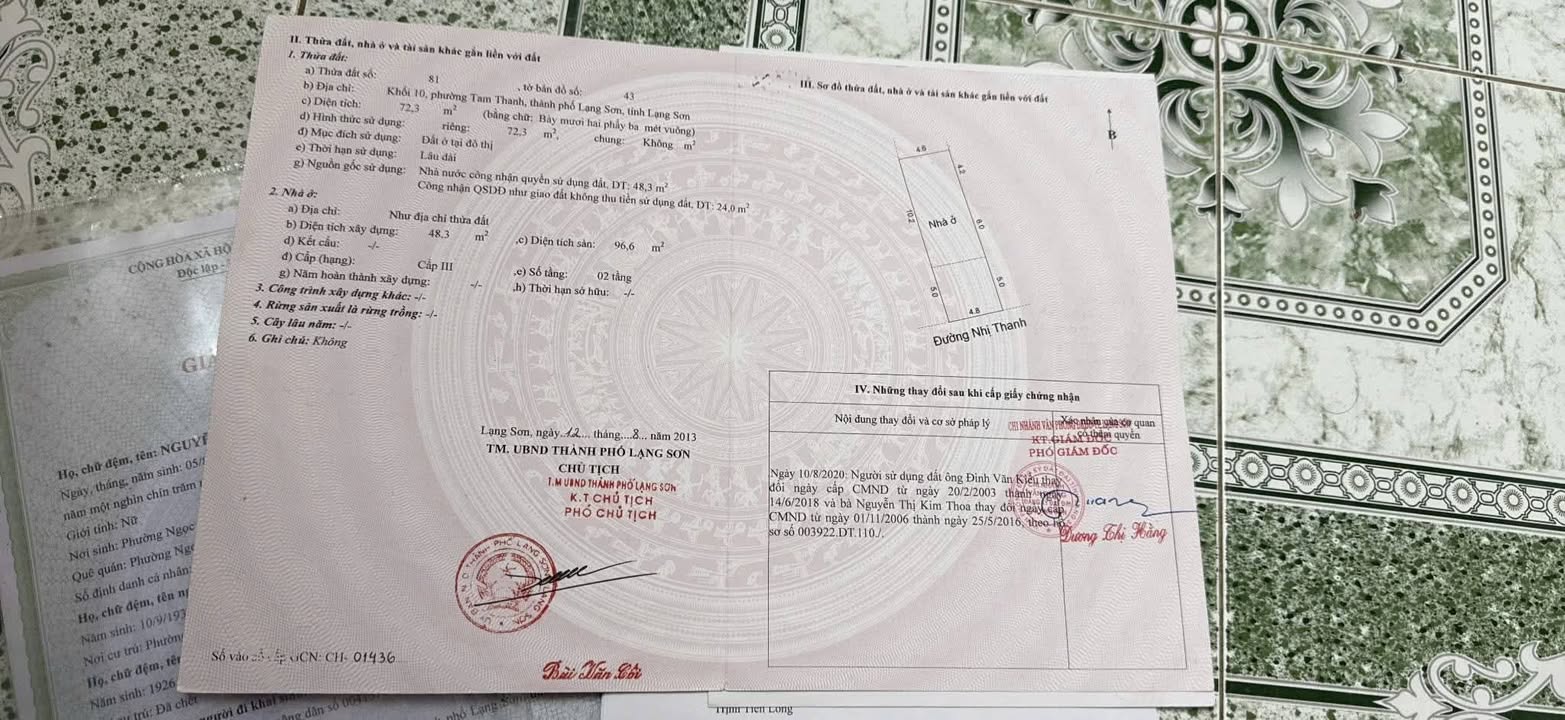 II. Thửa đất, nhà ở và tài sản khác gắn liền với đất
1. Thửa đất:
a) Thửa đất số: 81 , tờ bản đồ số: 43
b) Địa chỉ: Khối 10, phường Tam Thanh, thành phố Lạng Sơn, tỉnh Lạng Sơn
c) Diện tích: 72,3 m² (bằng chữ: Bảy mươi hai phẩy ba mét vuông)
d) Hình thức sử dụng: riêng: 72,3 m², chung: Không m²
đ) Mục đích sử dụng: Đất ở tại đô thị
e) Thời hạn sử dụng: Lâu dài
g) Nguồn gốc sử dụng: Nhà nước công nhận quyền sử dụng đất, DT: 48,3 m²
Công nhận QSDĐ như giao đất không thu tiền sử dụng đất, DT: 24,0 m²
2. Nhà ở:
a) Địa chỉ: Như địa chỉ thửa đất
b) Diện tích xây dựng: 48.3 m² ,c) Diện tích sàn: 96,6 m²
d) Kết cấu: -/-
đ) Cấp (hạng): Cấp III ,e) Số tầng: 02 tầng
g) Năm hoàn thành xây dựng: -/- ,h) Thời hạn sở hữu: -/-
3. Công trình xây dựng khác: -/-
4. Rừng sản xuất là rừng trồng: -/-
5. Cây lâu năm: -/-
6. Ghi chú: Không
Lạng Sơn, ngày 12 tháng 8 năm 2013
TM. UBND THÀNH PHỐ LẠNG SƠN
CHỦ TỊCH
T.M UBND THÀNH PHỐ LẠNG SƠN
K.T CHỦ TỊCH
PHÓ CHỦ TỊCH
Bùi Văn Côi
Số vào sổ cấp GCN: CH- 01436
III. Sơ đồ thửa đất, nhà ở và tài sản khác gắn liền với đất
B
4.5
4.2
10.2
Nhà ở
6.0
5.0
5.0
4.8
Đường Nhị Thanh
IV. Những thay đổi sau khi cấp giấy chứng nhận
Nội dung thay đổi và cơ sở pháp lý
Xác nhận của cơ quan
có thẩm quyền
KT.GIÁM ĐỐC
PHÓ GIÁM ĐỐC
Ngày 10/8/2020: Người sử dụng đất ông Đinh Văn Kiệu thay
đổi ngày cấp CMND từ ngày 20/2/2003 thành ngày
14/6/2018 và bà Nguyễn Thị Kim Thoa thay đổi ngày cấp
CMND từ ngày 01/11/2006 thành ngày 25/5/2016, theo hồ
sơ số 003922.DT.110./.
Dương Thị Hằng
CỘNG HÒA XÃ HỘ
Độc lập -
GIẤ
Họ, chữ đệm, tên: NGUYỄ
Ngày, tháng, năm sinh: 05/
năm một nghìn chín trăm
Giới tính: Nữ
Nơi sinh: Phường Ngọc
Quê quán: Phường Ngọ
Số định danh cá nhân:
Họ, chữ đệm, tên n
Năm sinh: 10/9/193
Nơi cư trú: Phườn
Họ, chữ đệm, tên
Năm sinh: 1926
trú: Đã chết
người đi khai
Trịnh Tiến Long